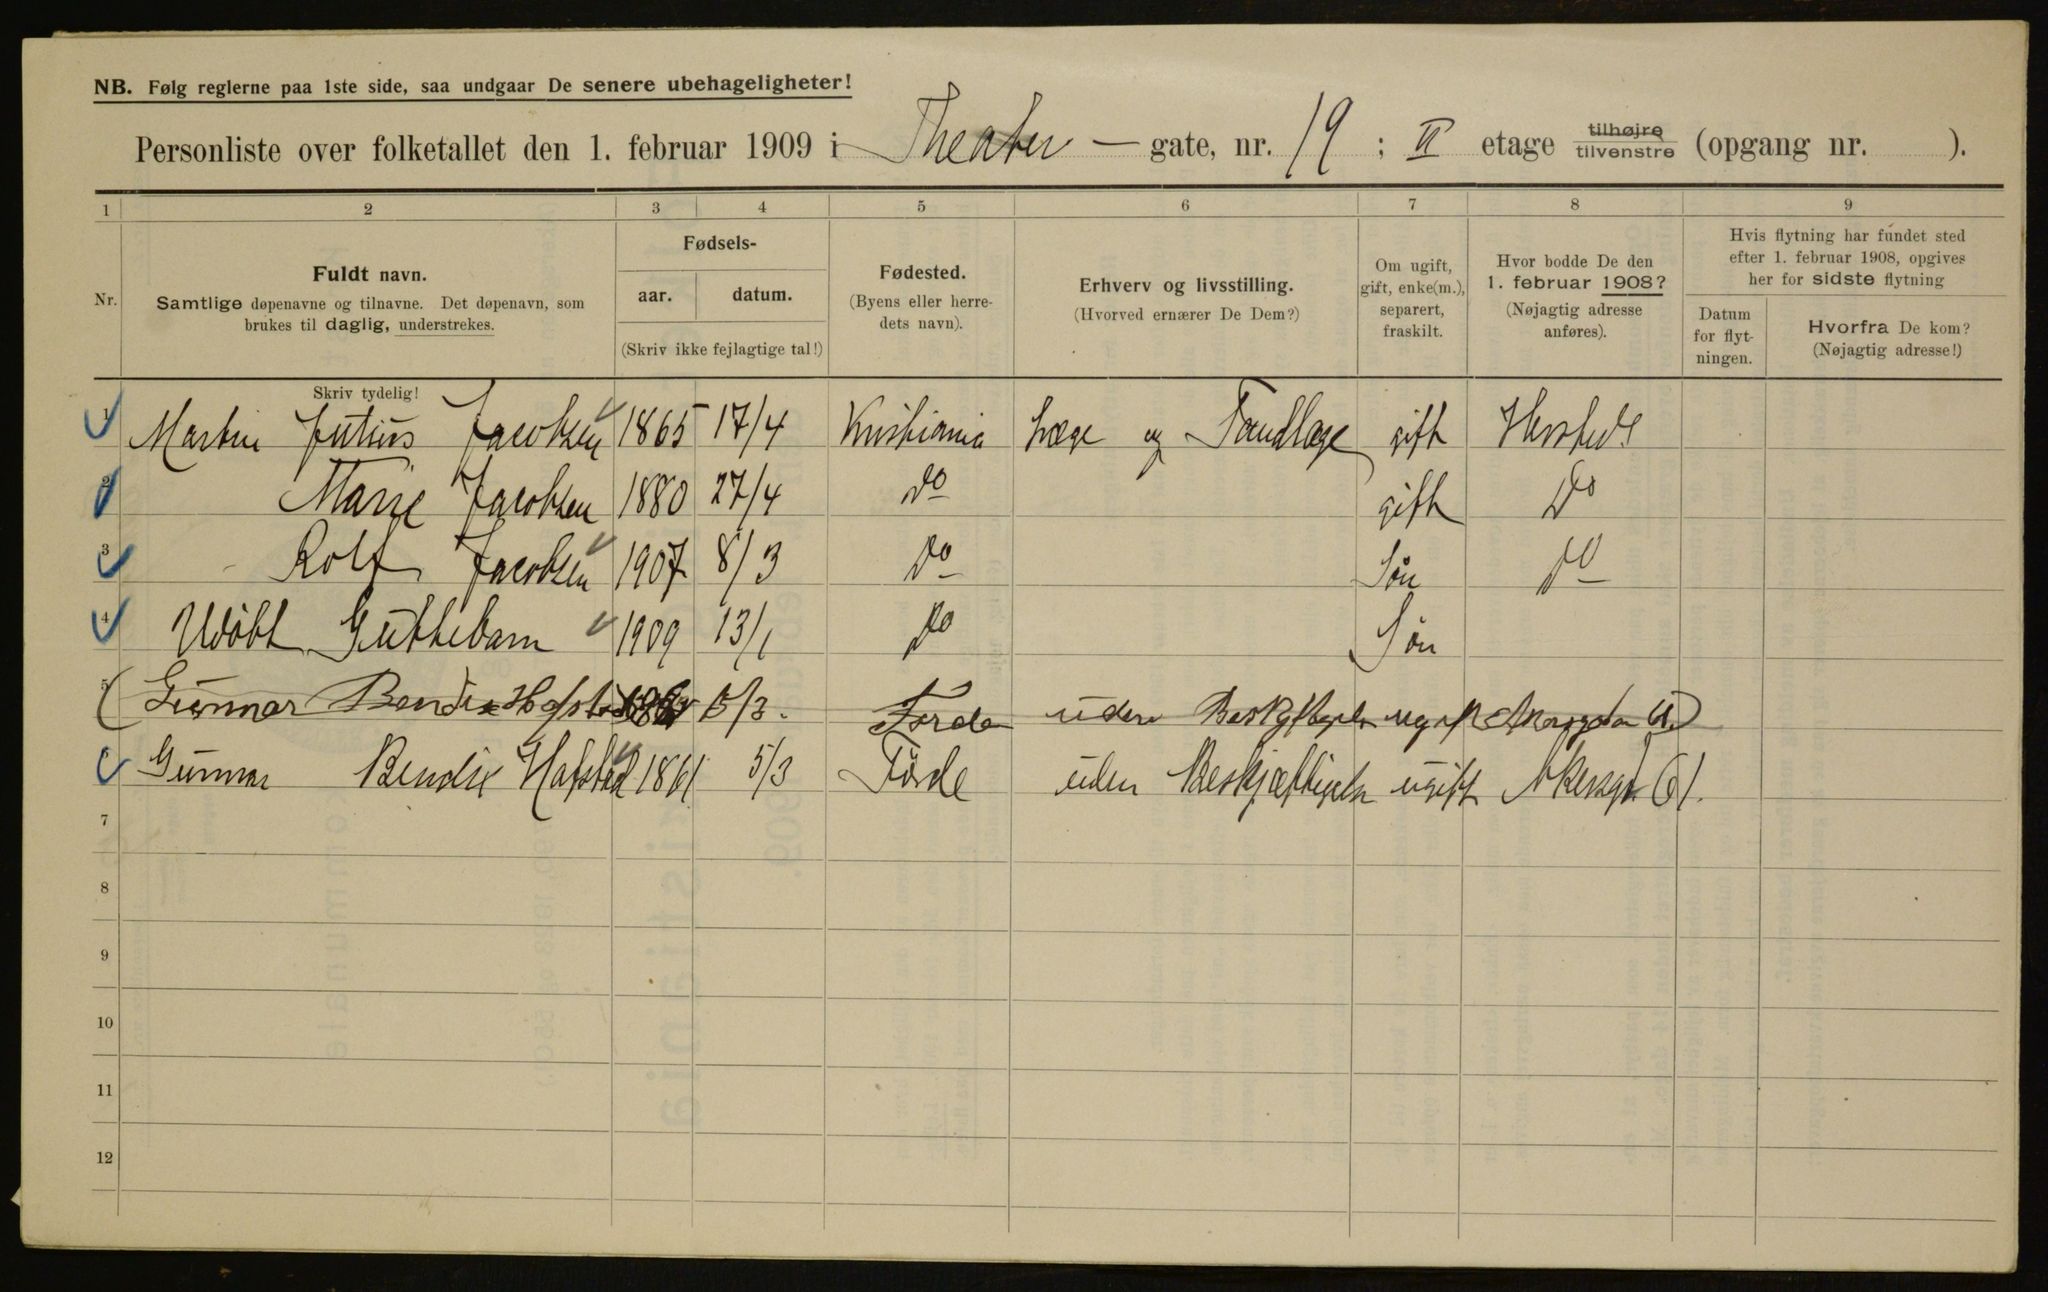 NB. Følg reglerne paa 1ste side, saa undgaar De senere ubehageligheter!
Personliste over folketallet den 1. februar 1909 i Theater - gate, nr. 19 ; II etage tilhøjre tilvenstre (opgang nr. ).
1 2 3 4 5 6 7 8 9
Nr.
Fuldt navn.
Samtlige døpenavne og tilnavne. Det døpenavn, som
brukes til daglig, understrekes.
Fødsels-
aar. datum.
(Skriv ikke fejlagtige tal!)
Fødested.
(Byens eller herre-
dets navn).
Erhverv og livsstilling.
(Hvorved ernærer De Dem?)
Om ugift,
gift, enke(m.),
separert,
fraskilt.
Hvor bodde De den
1. februar 1908?
(Nøjagtig adresse
anføres).
Hvis flytning har fundet sted
efter 1. februar 1908, opgives
her for sidste flytning
Datum
for flyt-
ningen.
Hvorfra De kom?
(Nøjagtig adresse!)
Skriv tydelig!
1 Martin Julius Jacobsen 1865 17/4 Kristiania Læge og Tandlæge gift Hersteds
2 Marie Jacobsen 1880 27/4 do gift Do
3 Rolf Jacobsen 1907 8/3 Do Søn Do
4 Udöbt Guttebarn 1909 13/1 Do Søn
5 (Gunnar Bendix 5/3. Förde uden
6 Gunnar Bendix Hafstad 1861 5/3 Förde uden Beskjæftigelse ugift Akersgt. 61.
7
8
9
10
11
12